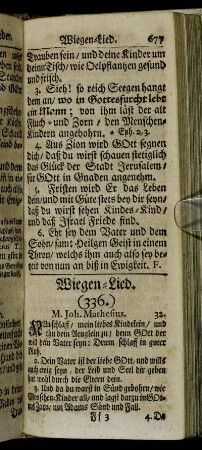 Wiegen-Lied. 677
Trauben fein / und deine Kinder um
deinn Tisch / wie Oelpflantzen gesund
und frisch.
3. Sieh! so reich Seegen hangt
dem an / wo in Gottesfurcht lebt
ein Mann; von ihm läst der alt
Fluch und Zorn / den Menschen-
Kindern angebohrn. * Eph. 2/3.
4. Aus Zion wird GOtt segnen
dich / daß du wirst schauen stetiglich
das Glück der Stadt Jerusalem /
für GOtt in Gnaden angenehm.
5. Fristen wird Er das Leben
dein / und mit Güte stets bey dir seyn /
daß du wirst sehen Kindes-Kind /
und daß Israel Friede find.
6. Ehr sey dem Vater und dem
Sohn / samt Heilgen Geist in einem
Thron / welchs ihm auch also sey be-
reit von nun an biß in Ewigkeit. F.
Wiegen-Lied.
(336.)
M. Joh. Mathesius. 32.
Nun schlaff / mein liebes Kindelein / und
thu dein Aeuglein zu / denn GOtt der
will dein Vater seyn: Drum schlaff in guter
Ruh.
2. Dein Vater ist der liebe GOtt / und wills
auch ewig seyn / der Leib und Seel dir geben
hat wohl durch die Eltern dein.
3. Und da du warst in Sünd gebohrn / wie
Menschen-Kinder all / und lagst darzu in GOt-
tes Zorn / um Adams Sünd und Fall.
Ff 3 4. Da